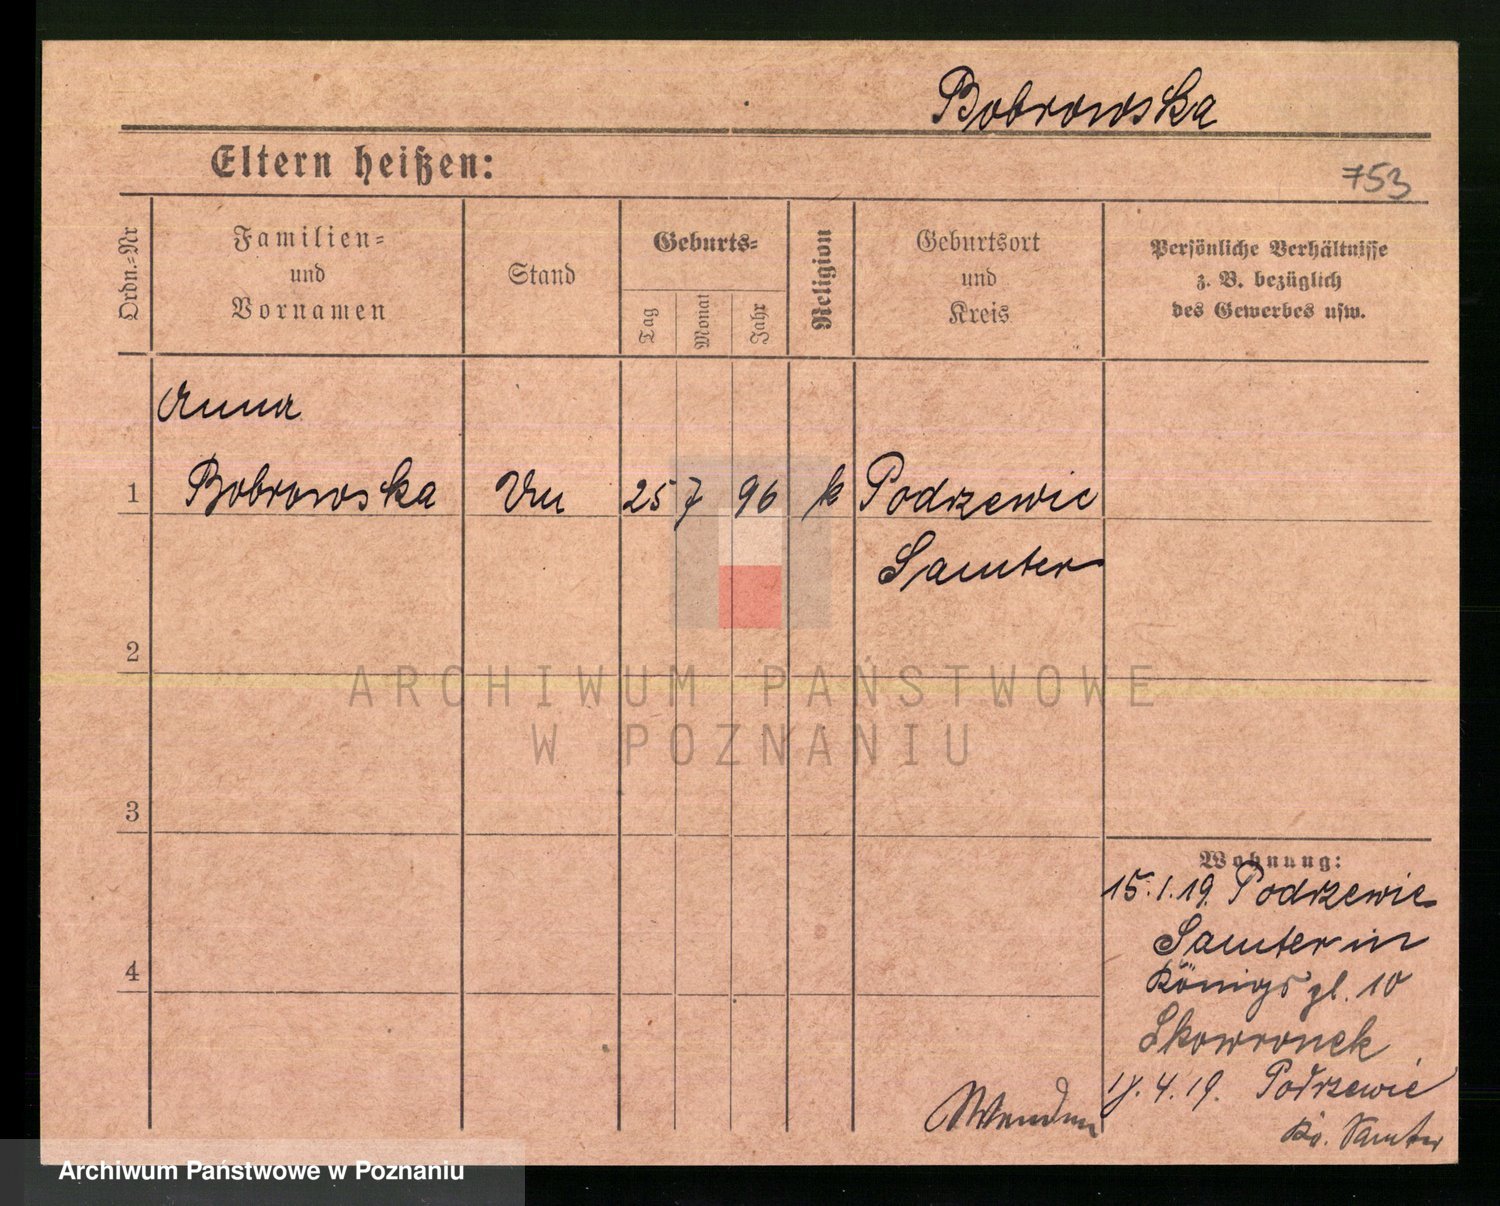 Bobrowska
Eltern heißen:
753
Ordn.=Nr
Familien=
und
Vornamen
Stand
Geburts=
Tag
Monat
Jahr
Religion
Geburtsort
und
Kreis
Persönliche Verhältnisse
z. B. bezüglich
des Gewerbes usw.
Anna
1 Bobrowska 25 7 96 k Podrzewie
Samter
2
ARCHIWUM PAŃSTWOWE
W POZNANIU
3
4
Wohnung:
15.1.19. Podrzewie
Samter in
Königspl. 10
Skowronek
Wenden
4.19. Podrzewie
Kr. Samter
Archiwum Państwowe w Poznaniu